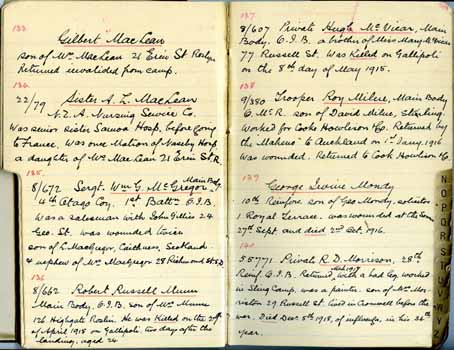 133
Gilbert MacLean
son of Mrs MacLean 21 Erin St Roslyn
Returned invalided from camp.
134
22/79 Sister A. L. MacLean
N.Z.A. Nursing Service Co.
Was senior sister Samoa Hosp. before going
to France. Was once Matron of Naseby Hosp.
a daughter of Mrs MacLean 21 Erin St. R.
135
8/672 Sergt. Wm G. McGregor Main Body
4th Otago Coy. 1st Battn O.I.B.
was a salesman with John Gillies 24
Geo. St. was wounded twice
son of C. MacGregor, Caithness, Scotland.
& nephew of Mrs MacGregor 28 Richmond St. S.D
136
8/662 Robert Russell Munn
Main Body, O.I.B. son of Mr Munn
126 Highgate Roslin. He was killed on the
of April 1915 on Gallipoli, two days after the
landing, aged 24
137
8/607 Private Hugh McVicar, Main
Body, O.I.B. a brother of Miss Mary McVicar
77 Russell St. Was Killed on Gallipoli
on the 8th day of May 1915.
138
9/250 Trooper Roy Milne, Main Body
O.M.R. son of David Milne, Stirling.
Worked for Cook Howlison & Co. Returned by
the Maheno to Auckland on 1st Jany 1916
was wounded. Returned to Cook Howlison & Co.
139
George Irvine Mondy
10th Reinfore son of Geo Mondy, solicitor
1 Royal Terrace. was wounded at the Somme
27th Sept. and died 2nd Oct. 1916.
140
55771 Private R. D. Morrison, 28th
Reinf. O.I.B. Returned with a bad leg worked
in Sling Camp, was a painter. son of Mr Mor-
rison 29 Russell St. lived in Cromwell before the
war. Died Decr 5th 1918, of influenza, in his 36th
year.
N
O
P
Q
R
S
T
U
V
W
Y